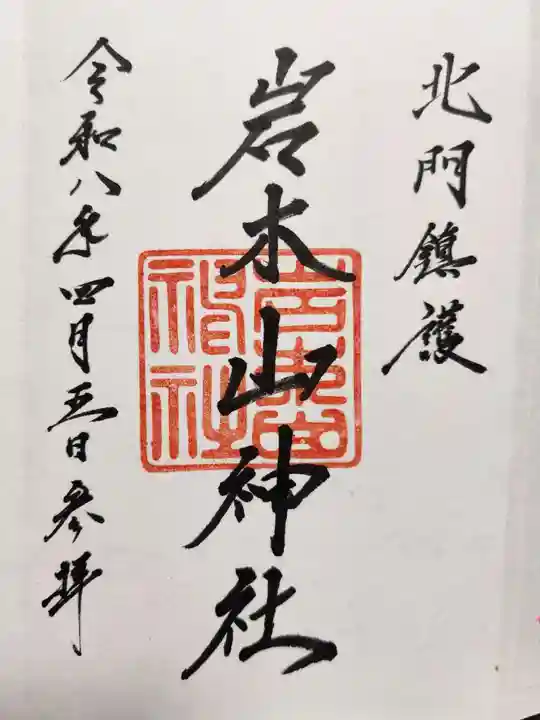 北門鎮護
岩木山神社
岩木山神社
令和八年四月五日参拝